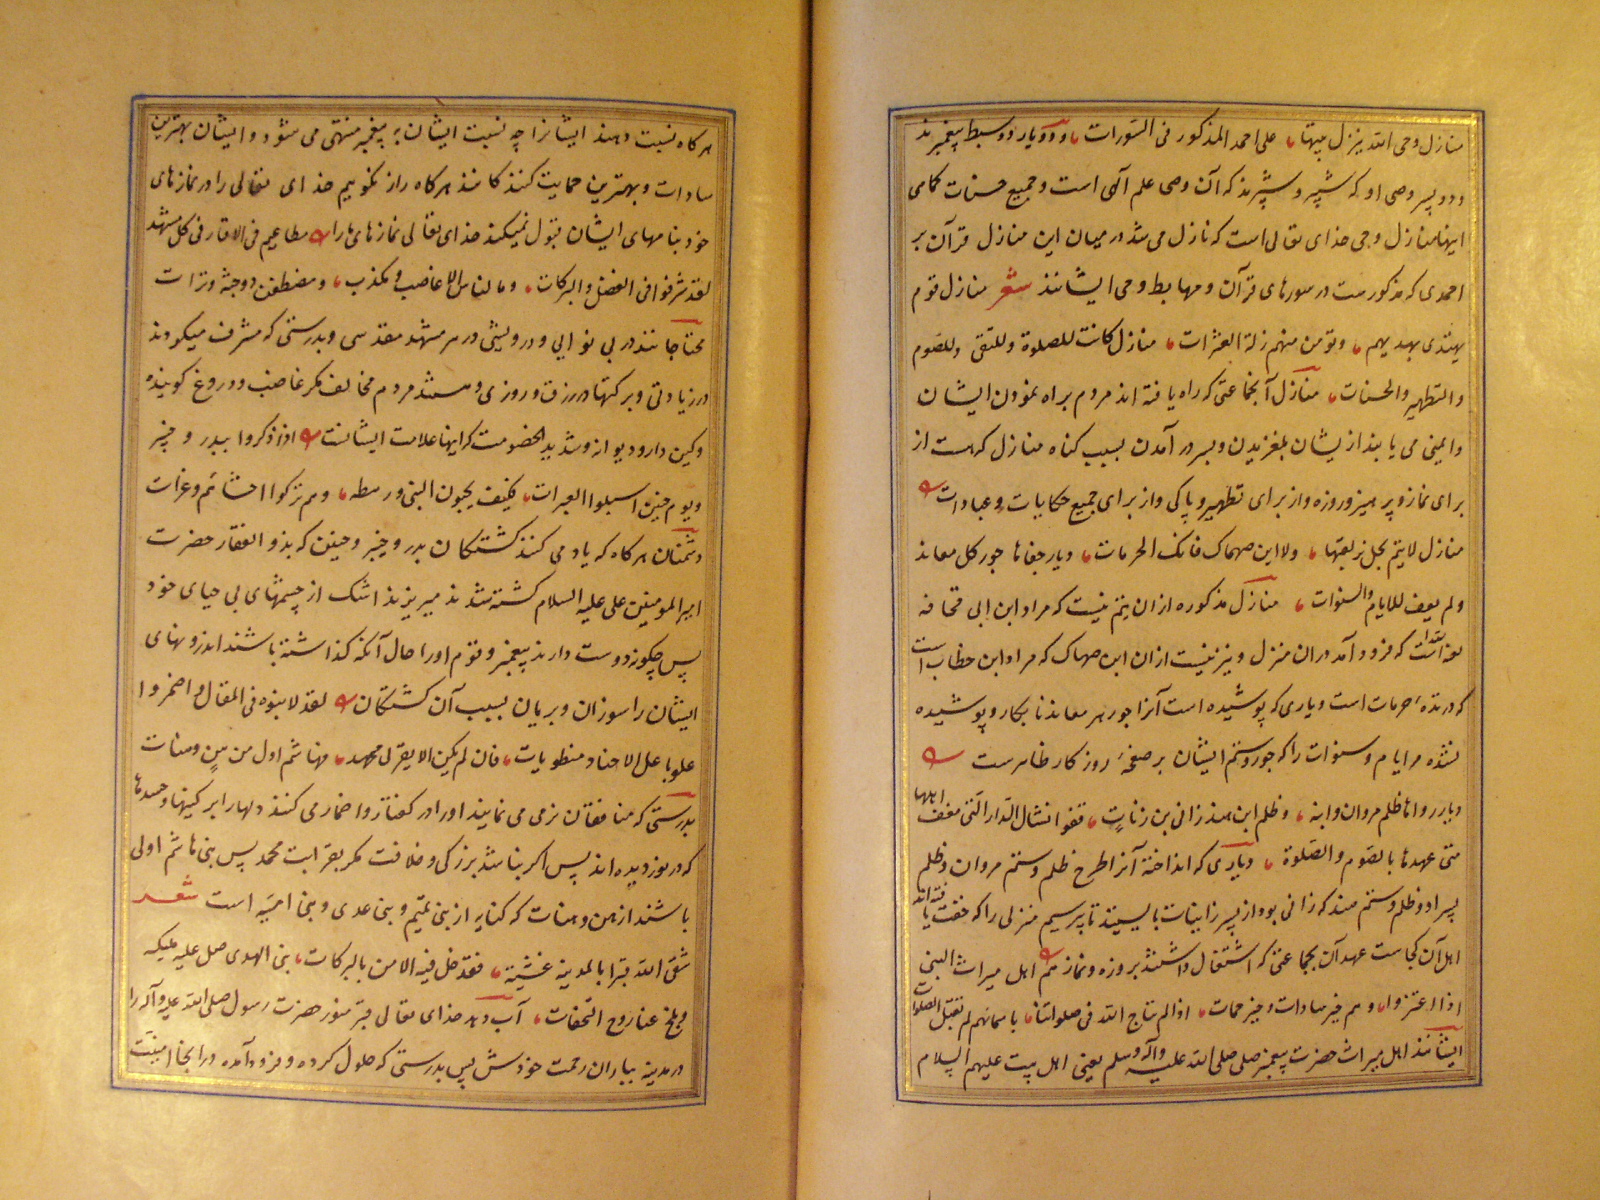 منازل وحی الله ینزل بیتها علی احمد المذکور فی السورات ودو یار دو سبط پیغمبرند
ودو پسر وصی او که شبیر و شبرند که آن وصی علم آلهی است و جمیع حسنات تمامی
اینها منازل وحی خدای تعالی است که نازل می شد در میان این منازل قرآن بر
احمدی که مذکورست در سورهای قرآن و مهابط وحی ایشانند شعر منازل قوم
یهتدی بهدیهم وتؤمن منهم زلة العثرات منازل کانت للصلوة وللتقی وللصوم
والتطهیر والحسنات منازل آنجماعتی که راه یافته اند مردم براه نمودن ایشان
وایمنی می یابند از یشان بلغزیدن و بسر در آمدن بسبب کناه منازل که هست از
برای نماز و پرهیز و روزه و از برای تطهیر و پاکی و از برای جمیع و عبادات
منازل لا یتم یحل بربعها ولا ابن صهاک فاتک الحرمات دیار عفاها جور کل معاند
ولم یعف للایام والسنوات منازل مذکوره از ان یتم نیست که مراد ابن ابی قحافه
لعنه الله است که فرود آمد در ان منزل و نیز نیست از ان ابن صهاک که مراد ابن خطاب است
که درنده حرمات است و یاری که پوشیده است آنرا جور هر معاند نابکار و پوشیده
نشده مر ایام و سنوات را که جور و ستم ایشان بر صفحه روزکار ظاهرست
مروان وابنه وظلم ابن هند زانی بن زنات قفوا نسئال الدار التی خف اهلها
متی عهدها بالصوم والصلوة دیاری که انداخته آنرا طرح ظلم و ستم مروان و ظلم
پسر او و ظلم و ستم هند که زانی بود از پسر زانیات بایستید تا بپرسیم منزلی را که خفت یافته اند
اهل آن کجاست عهد آن بجماعتی که اشتغال داشتند بروزه و نماز هم اهل میراث النبی
اذا اعتزوا و هم خیر سادات و خیر حمات اذا لم نناج الله فی صلواتنا باسمائهم لم تقبل الصلوات
ایشانند اهل میراث حضرت پیغمبر صلی صلی الله علیه وآله وسلم یعنی اهل بیت علیهم السلام
هرکاه نسبت دهند ایشانرا چه نسبت ایشان به پیغمبر منتهی می شود و ایشان بهترین
سادات و بهترین حمایت کنندکانند هرکاه راز نکوییم خدای تعالی را در نمازهای
خود بنامهای ایشان قبول نمیکند خدای تعالی نمازهای ما را مطاعیم فی الاقتار فی کل مشهد
لقد شرفوا فی الفضل والبرکات وما الناس الا غاصب ومکذب ومضطغن ذو حنة وترات
محتاجانند در بی نوایی و درویشی در هر مشهد مقدسی و بدرستی که مشرف میکردند
در زیادتی و برکتها در رزق و روزی و هستند مردم مخالف مکر غاصب و دروغ کوینده
وکین دار و دیوانه و شدید الخصومت که اینها علامت ایشانست اذا ذکروا ببدر و خیبر
ویوم حنین اسبلوا العبرات فکیف یحبون النبی ورهطه وهم ترکوا احشائهم وغرات
دشمنان هرکاه که یاد می کنند کشتکان بدر و خیبر و حنین که بذو الفقار حضرت
امیر المومنین علی علیه السلام کشته شدند میریزند اشک از چشمهای بی حیای خود
پس چکونه دوست دارند پیغمبر و قوم او را حال آنکه کذاشته باشند اندرونهای
ایشان را سوزان و بریان بسبب آن کشتکان لقد لاینوه فی المقال واضمروا
علوبا علی الاحقاد منطویات فان لم یکن الا بقربی محمد فهاشم اولی من هن وهنات
بدرستی که منافقان نرمی می نمایند او را در کفتار و اضمار می کنند دلها را بر کینها و حسدها
که در نوردیده اند پس اکر بناشد بزرکی و خلافت مکر بقرابت محمد پس بنی هاشم اولی
باشند از هن وهنات که کنایه از بنی تمیم و بنی عدی و بنی امیه است شعر
سقی الله قبرا بالمدینة غیثه فقد حل فیه الامن بالبرکات نبی الهدی صلی علیه ملیکه
وبلغ عنا روح التحفات آب دهد خدای تعالی قبر منور حضرت رسول صلی الله علیه وآله را
در مدینه بباران رحمت خودش پس بدرستی که حلول کرده و فرود آمده در انجا امنیت